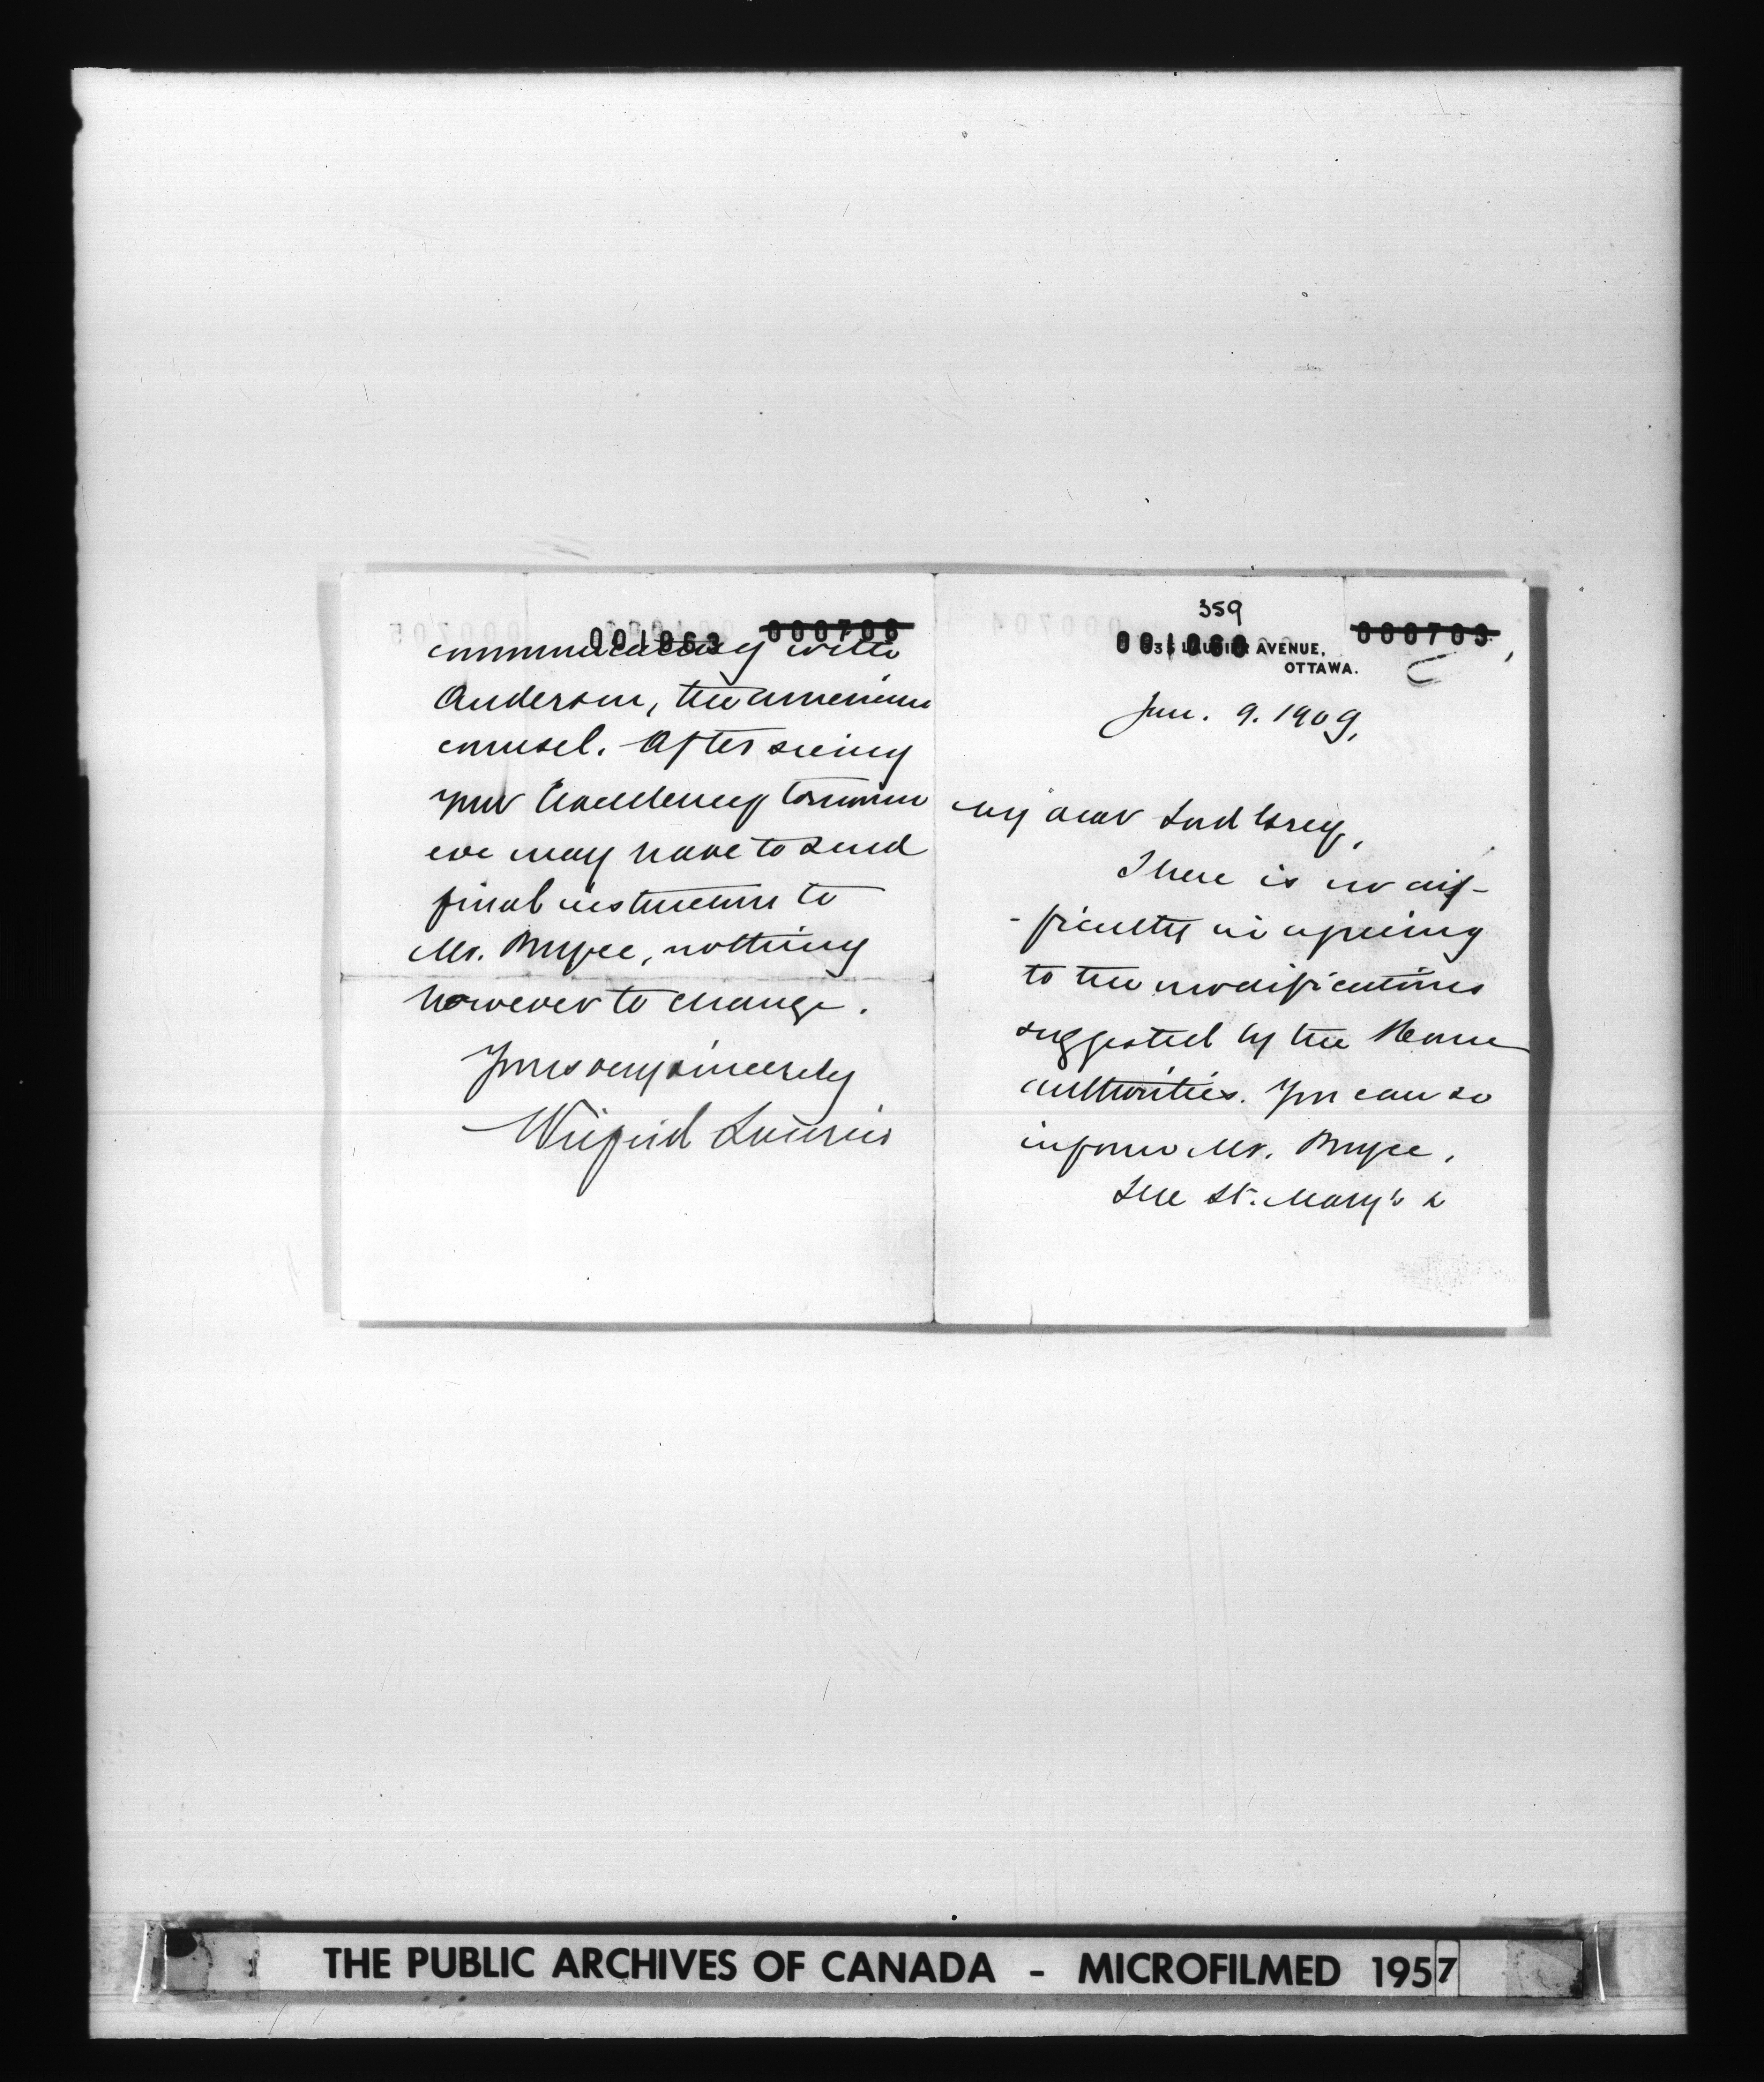 359
001060
000703
335 LAURIER AVENUE,
OTTAWA.
Jan. 9. 1909,
My dear Lord Grey,
There is no dif-
-ficulty in agreeing
to the modifications
suggested by the Home
authorities. You can so
inform Mr. Bryce.
The St. Mary's &
001063
000706
communicating with
Anderson, the American
counsel. After seeing
your Excellency tomorrow
we may have to send
final instructions to
Mr. Bryce, nothing
however to change.
Yours very sincerely
Wilfrid Laurier
THE PUBLIC ARCHIVES OF CANADA - MICROFILMED 1957